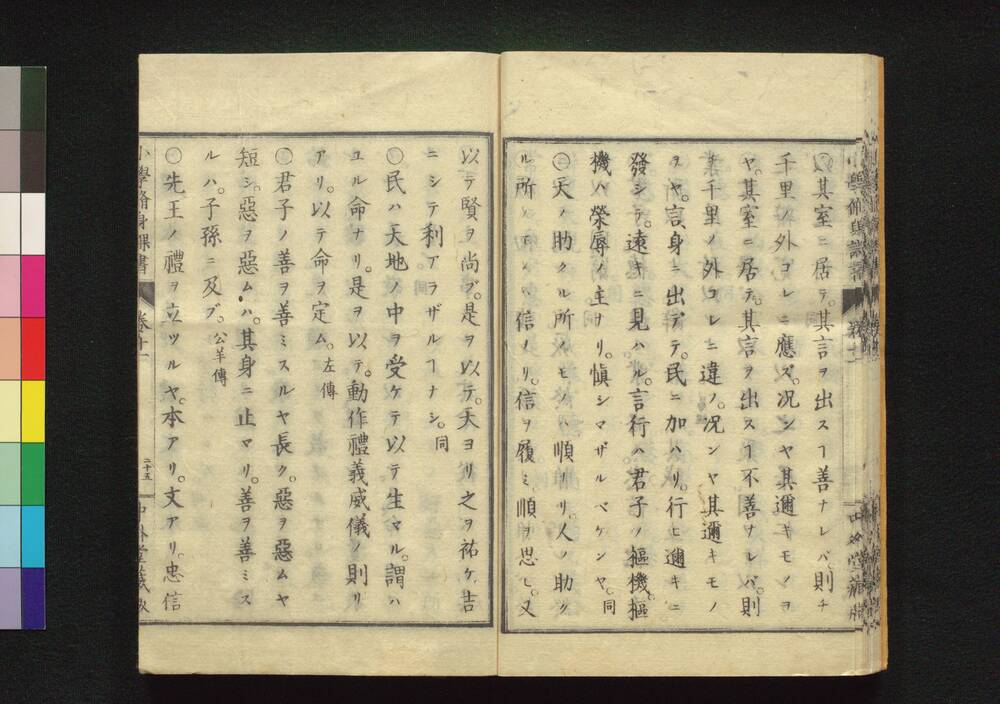 〇其室ニ居テ。其言ヲ出スヿ善ナレバ。則チ
千里ノ外コレニ應ズ。况ンヤ其邇キモノヲ
ヤ。其室ニ居テ。其言ヲ出スヿ不善ナレバ。則
チ千里ノ外コレニ違フ。况ンヤ其邇キモノ
ヲヤ。言身ニ出デテ。民ニ加ハリ。行ヒ邇キニ
發シテ。遠キニ見ハル。言行ハ君子ノ樞機。樞
機ハ榮辱ノ主ナリ。愼シマザルベケンヤ。同
〇天ノ助クル所ノモノハ順ナリ。人ノ助ク
ル所ノモノハ信ナリ。信ヲ履ミ。順ヲ思ヒ。又
以テ賢ヲ尚ブ。是ヲ以テ。天ヨリ之ヲ祐ケ。吉
ニシテ利アラザルヿナシ。同
〇民ハ天地ノ中ヲ受ケテ以テ生マル。謂ハ
ユル命ナリ。是ヲ以テ。動作禮義威儀ノ則リ
アリ。以テ命ヲ定ム。左傳
〇君子ノ善ヲ善ミスルヤ長ク。惡ヲ惡ムヤ
短シ。惡ヲ惡ムハ。其身ニ止マリ。善ヲ善ミス
ルハ。子孫ニ及ブ。公羊傳
〇先王ノ禮ヲ立ツルヤ。本アリ。文アリ。忠信
小學脩身課書
卷十一
二十五
中外堂藏版